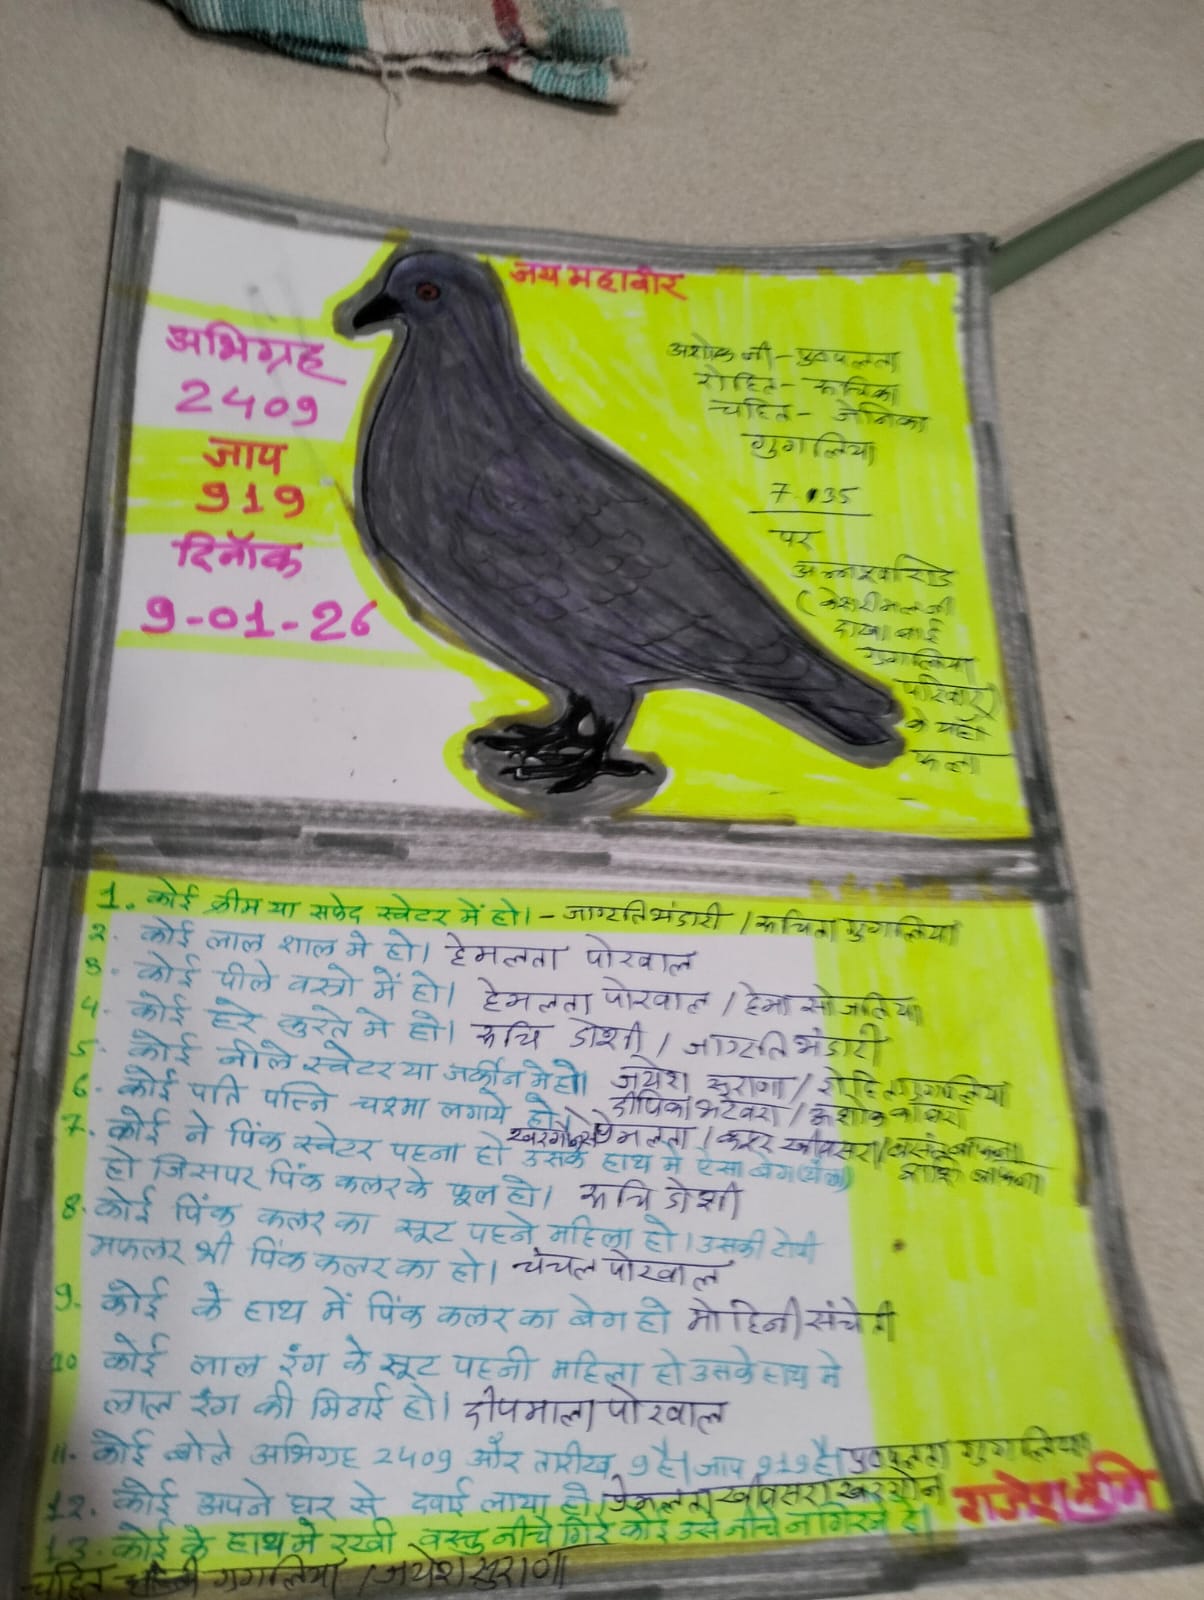 जय महावीर
अभिग्रह
2409
जाप
919
दिनॉक
9-01-26
अशोक जी - पुष्पलता
रोहित - रूचिका
चहित - जेनिका
गुगलिया
7.35
पर
(केशरीमल जी
दाखा बाई
गुगलिया
परिवार)
के यहॉ
फला
1. कोई क्रीम या सफेद स्वेटर में हो। - जाग्रति भंडारी / रूचिका गुगलिया
2. कोई लाल शाल मे हो। हेमलता पोरवाल
3. कोई पीले वस्त्रो में हो। हेमलता पोरवाल / हेमा सोजतिया
4. कोई हरे कुरते मे हो। रूचि डोशी / जाग्रति भंडारी
5. कोई नीले स्वेटर या जर्कीन मे हो। जयेश सुराणा / रोहित गुगलिया
6. कोई पति पत्नि चश्मा लगाये हो। दीपिका भटेवरा / अशोक
7. कोई ने पिंक स्वेटर पहना हो उसके हाथ मे ऐसा बेग (थैला)
हो जिसपर पिंक कलर के फूल हो। रूचि डोशी
8. कोई पिंक कलर का सूट पहने महिला हो। उसकी टोपी
मफलर भी पिंक कलर का हो। चंचल पोरवाल
9. कोई के हाथ में पिंक कलर का बेग हो मोहिनी संचेती
10 कोई लाल रंग के सूट पहनी महिला हो उसके हाथ मे
लाल रंग की मिठाई हो। दीपमाला पोरवाल
11. कोई बोले अभिग्रह 2409 और तारीख 9 है। जाप 919 है। पुष्पलता गुगलिया
12. कोई अपने घर से दवाई लाया हो। प्रेमलता खीवसरा खरगोन
13. कोई के हाथ मे रखी वस्तु नीचे गिरे कोई उसे नीचे न गिरने दे।
राजेश मुनि
चहित गुगलिया / जयेश सुराणा